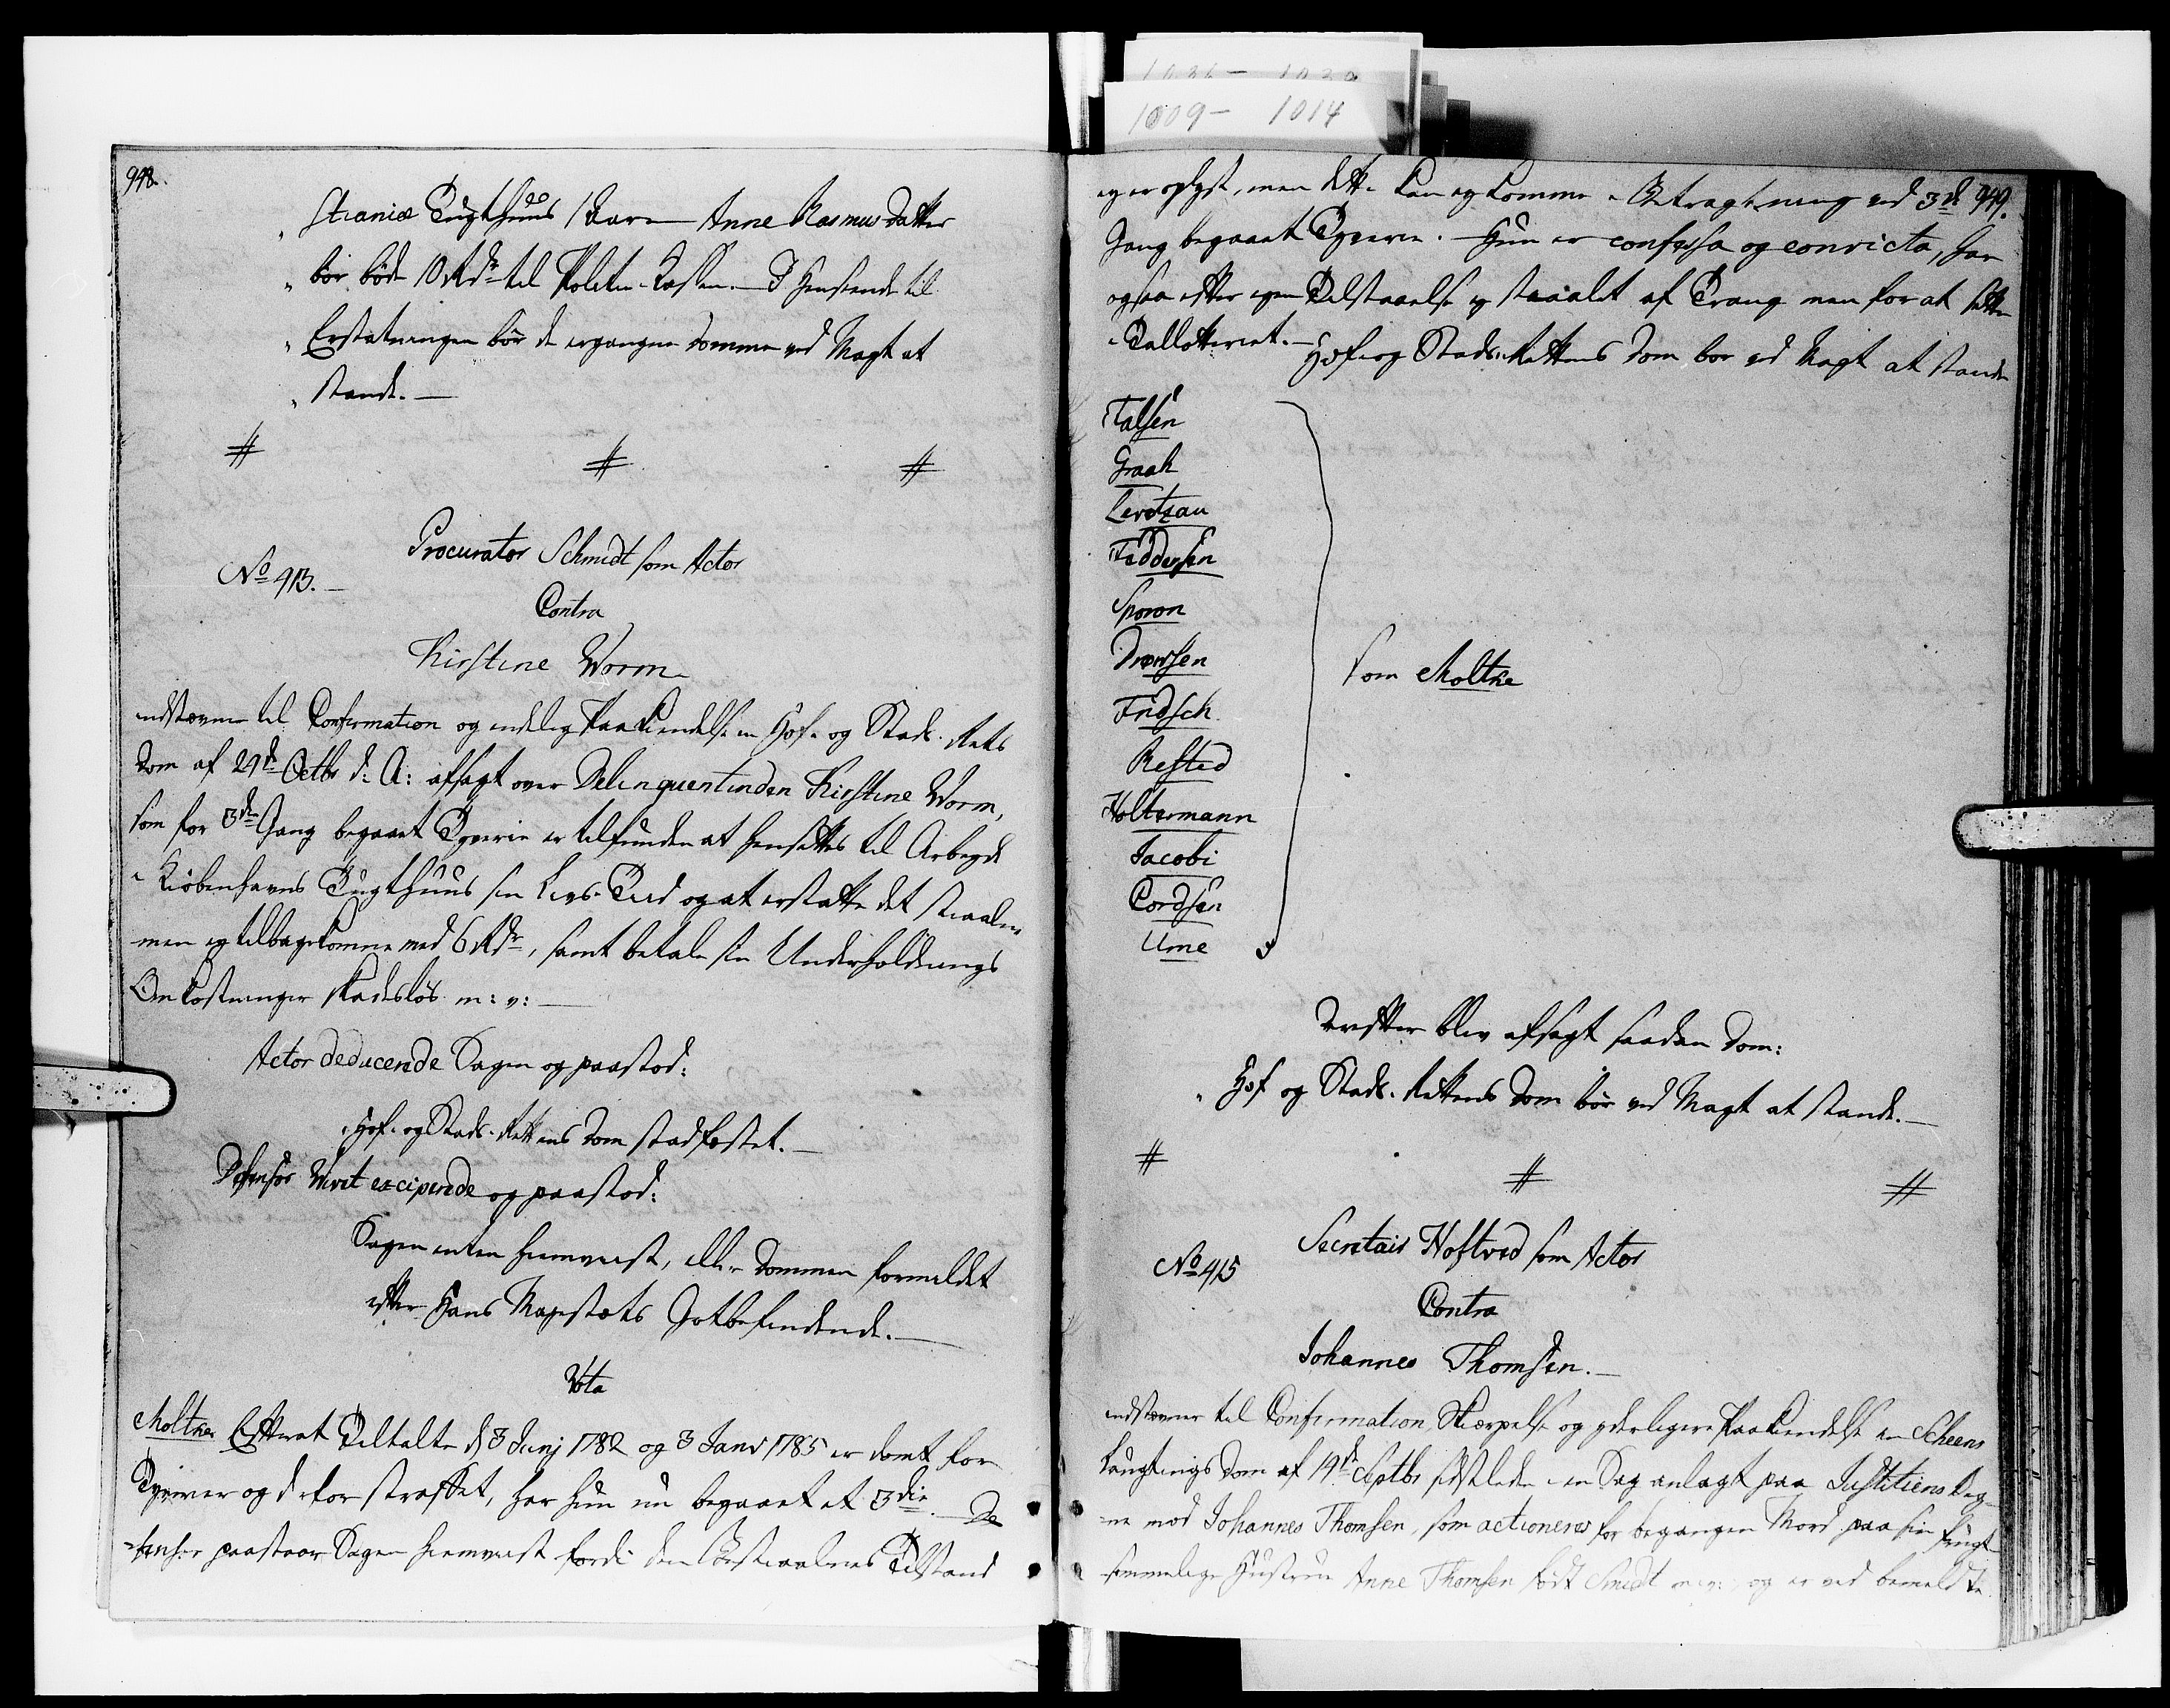 1009- 1014
948.
„ stianiæ Tugthuus 1 Aar. — Anne Rasmus Datter
„ bør bøde 10 Rdr til Politie-Kassen. — I Henseende til
„ Erstatningen bør de ergangne Domme ved Magt at
„ stande. —
# # #
Procurator Schmidt som Actor
No 413. —
Contra
Kirstine Worm
indstævner til Confirmation og endelig Paakiendelse en Hof- og Stads-Rets
Dom af 29de Octbr d: A: afsagt over Delinquentinden Kirstine Worm,
som for 3die Gang begaaet Tyverie er tilfunden at hensættes til Arbeyde
i Kiøbenhavns Tugthuus sin Livs-Tiid og at erstatte det staalne
men ey tilbagekomne med 6 Rdr, samt betale sin Underholdnings
Omkostninger skadesløs m: v: —
Actor deducerede Sagen og paastod:
Hof- og Stads-Rettens Dom stadfæstet. —
Defensor Wivet exciperede og paastod:
Sagen enten hiemviist, eller Dommen formildet
efter Hans Majestæts Gotbefindende. —
Vota
Moltke Efterat Tiltalte d 3 Junj 1782 og 3 Janv 1785 er dømt for
Tyverier og derfor straffet, har hun nu begaaet et 3die. — De
=fensor paastaaer Sagen hiemviist fordi den Bestiaalnes Tilstand
ey er oplyst, men dette kan ey komme i Betragtning ved 3de 949.
Gang begaaet Tyverie. — Hun er confessa og convicta, har
ogsaa efter egen Tilstaaelse ey staalet af Trang men for at sette
i Tallotteriet. — Hof- og Stads-Rettens Dom bør ved Magt at stande
Falsen
Graah
Levetzau
Feddersen
Sporon
Drewsen
som Moltke
Fridsch
Refsted
Holtermann
Jacobi
Cordsen
Ume
Derefter blev afsagt saadan Dom:
„ Hof og Stads-Rettens Dom bør ved Magt at stande. —
# # #
Secretair Hoftved som Actor
No 415
Contra
Johannes Thomsen. —
indstævner til Confirmation, Skiærpelse og yderligere Paakiendelse en Scheens
Laugtings Dom af 19de Septbr sidstleden i en Sag anlagt paa Justitiens Veg=
=ne mod Johannes Thomsen, som actioneres for begangen Mord paa sin frugt=
sommelige Hustrue Anne Thomsen født Smidt m: v: og er ved bemeldte